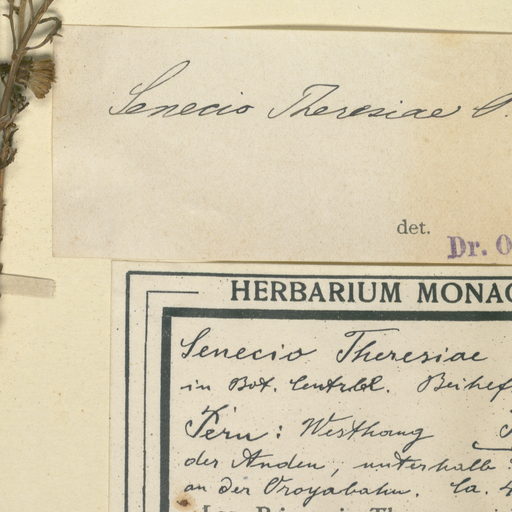 Senecio Theresiae O.
det.
Dr. O
HERBARIUM MONAC
Senecio Theresiae
in Bot. Centrbl. Beihef
Peru: Westhang
der Anden, unterhalb
an der Oroyabahn. Ca. 4